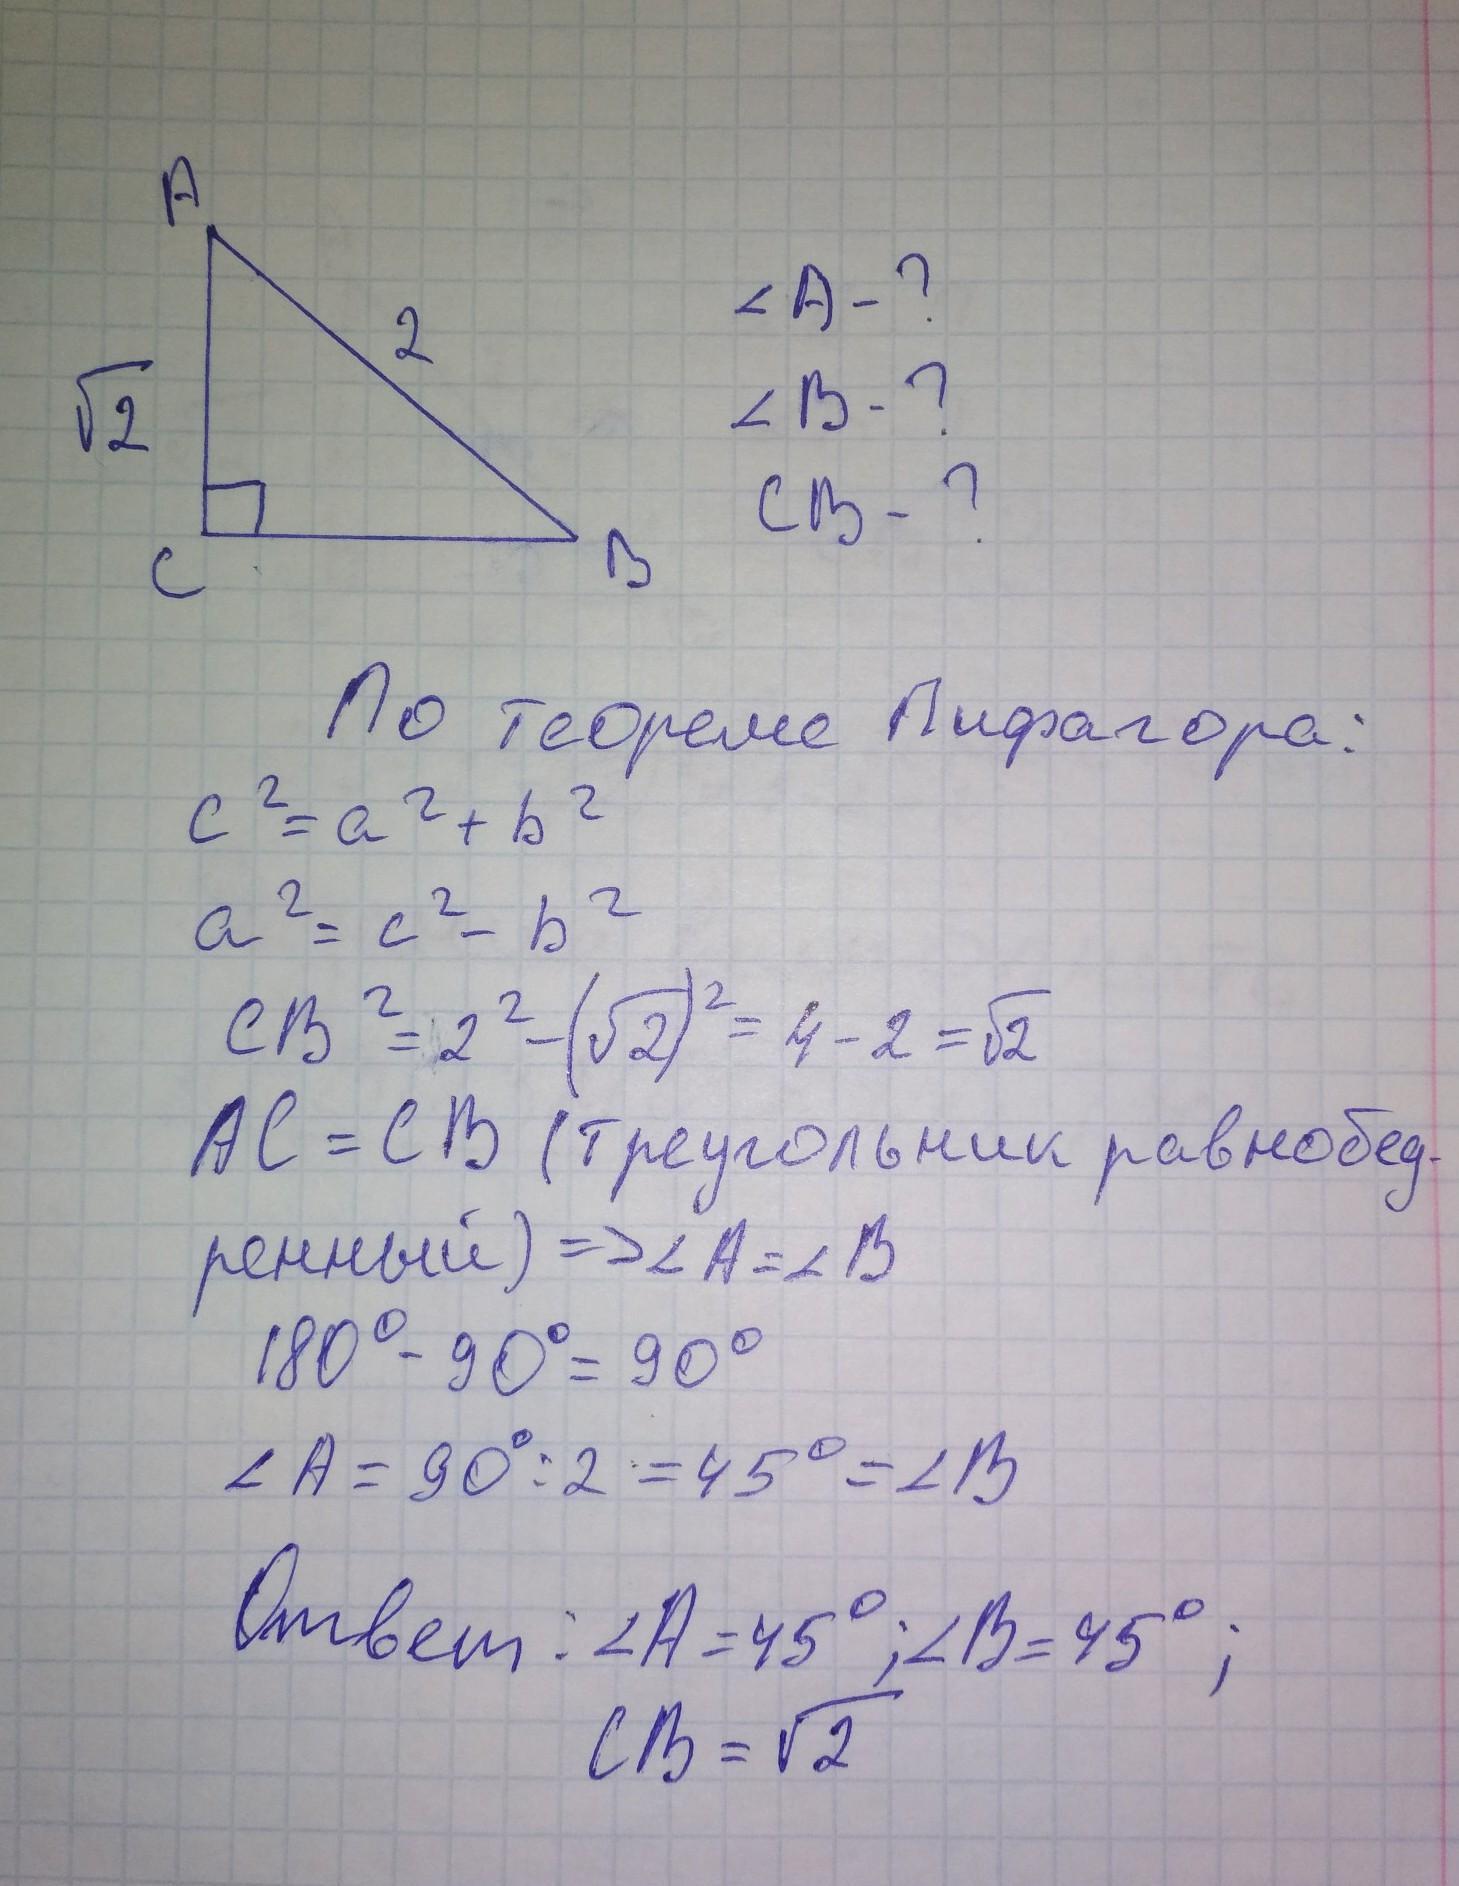 A
2
√2
C
B
∠A-?
∠B-?
CB-?
По теореме Пифагора:
c²=a²+b²
a²=c²-b²
CB²=2²-(√2)²=4-2=√2
AC=CB (треугольник равнобед-
ренный)=>∠A=∠B
180°-90°=90°
∠A=90°:2=45°=∠B
Ответ:∠A=45°;∠B=45°;
CB=√2